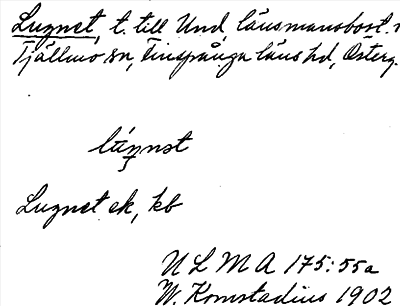 Lugnet, t. till Und, länsmansbost.
Tjällmo sn, Finspånga läns hd, Österg.
Lugnet ek, kb
ULMA 175:55a
W. Komstadius 1902